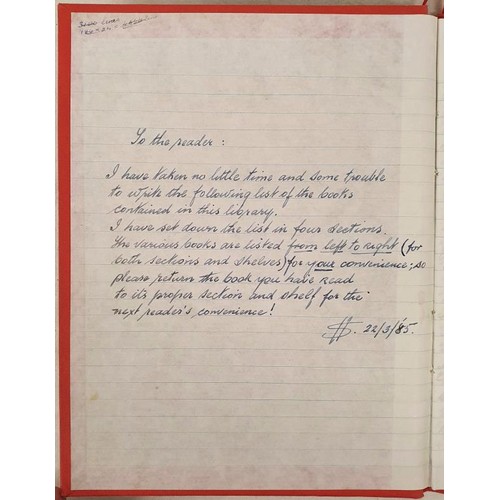 To the reader :
I have taken no little time and some trouble
to write the following list of the books
contained in this library.
I have set down the list in four sections.
The various books are listed from left to right (for
both sections and shelves) for your convenience; so
please return the book you have read
to its proper section and shelf for the
next reader's convenience!
22/3/85.